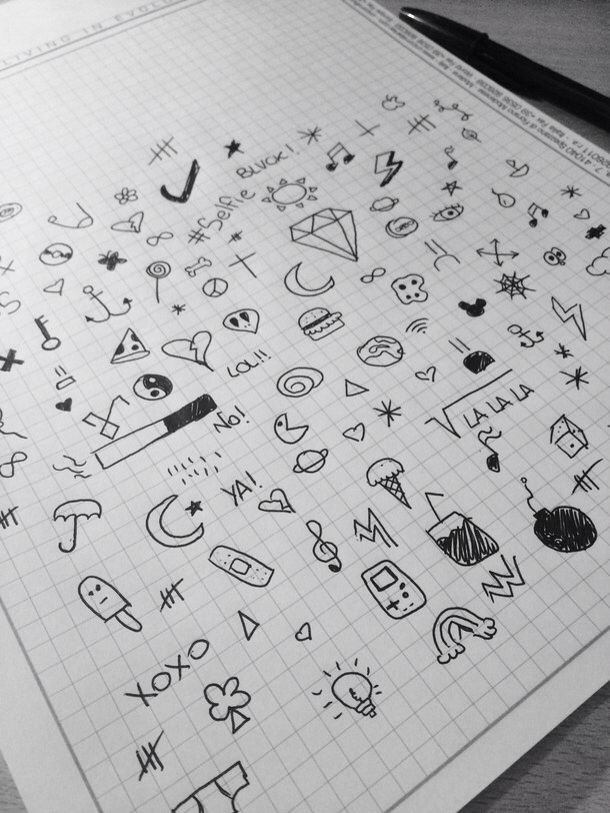 LIVING IN EVOLU
BLVCK!
#Selfie
LOL!!
NO!
LA LA LA
YA!
XOXO